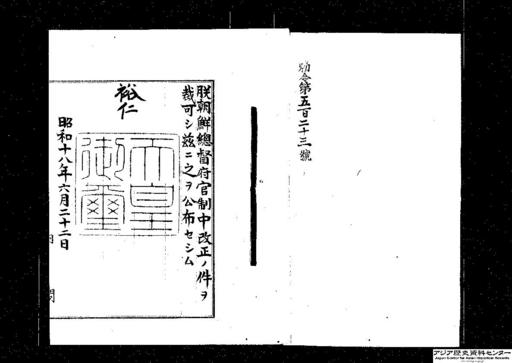 勅令第五百二十三號
朕朝鮮總督府官制中改正ノ件ヲ
裁可シ茲ニ之ヲ公布セシム
裕仁
天皇
御璽
昭和十八年六月二十二日
アジア歴史資料センター
Japan Center for Asian Historical Records